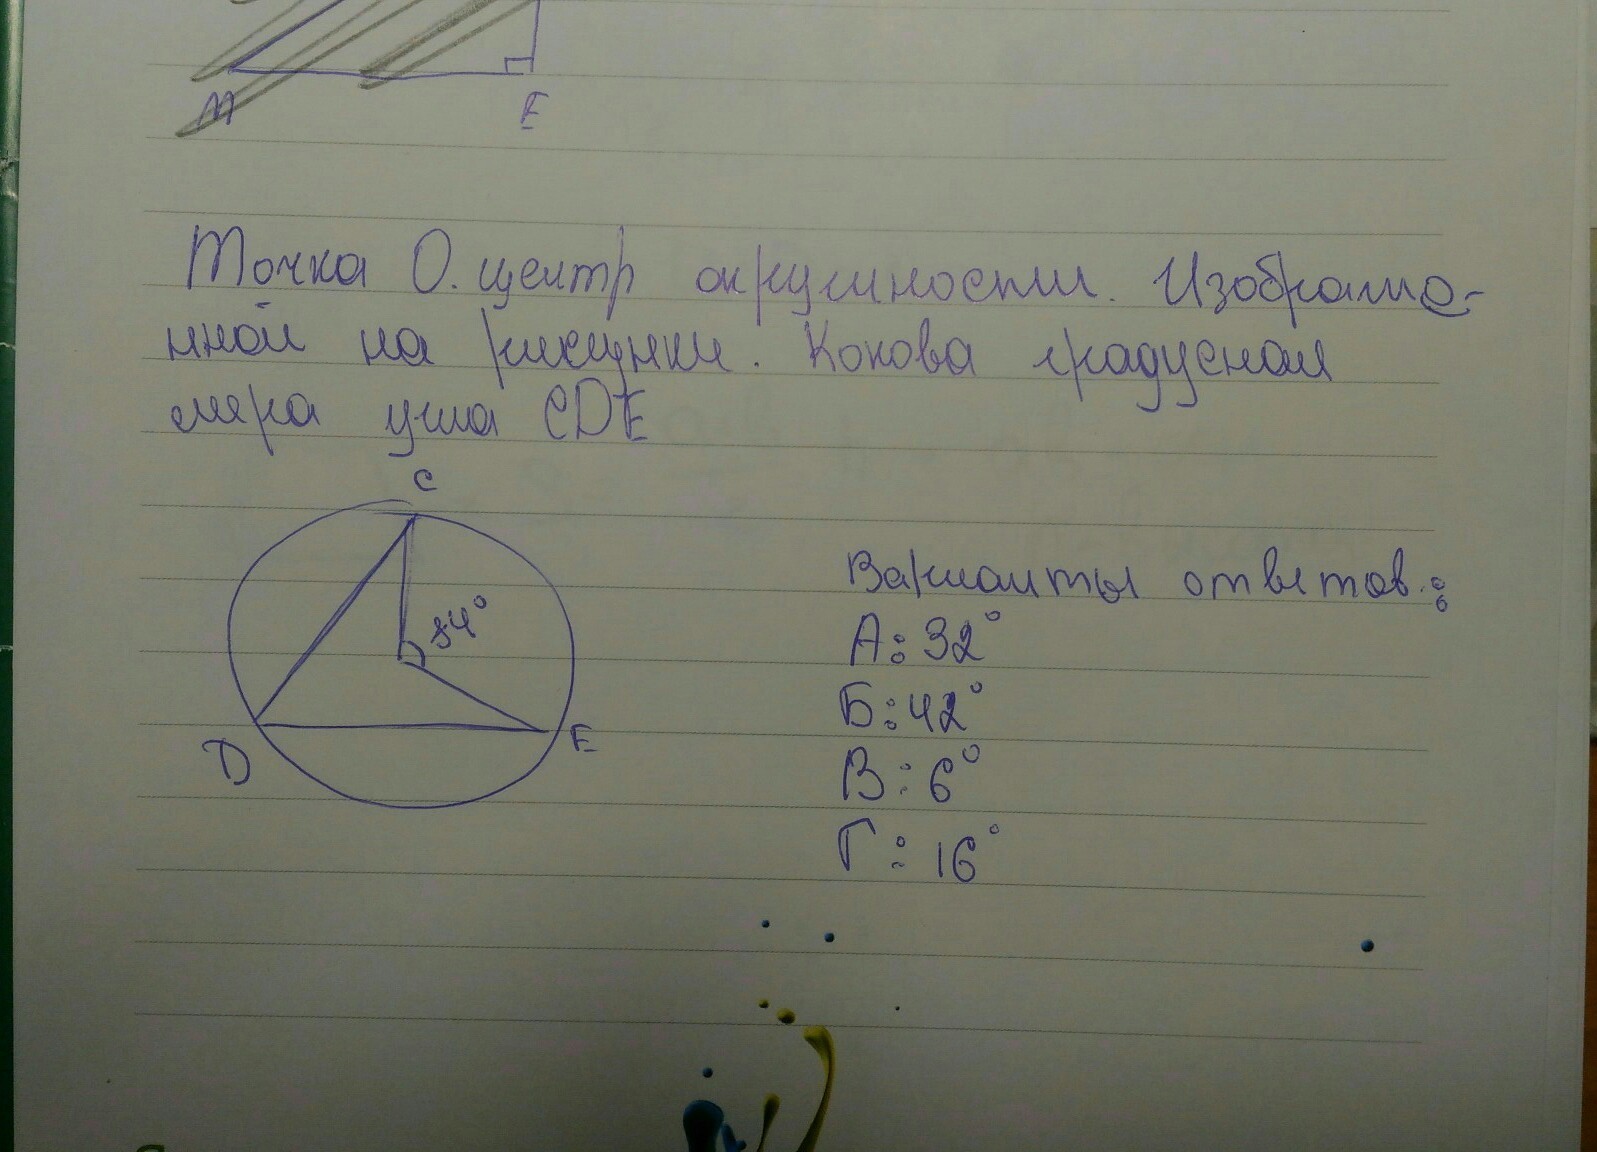 M E
Точка О. центр окружности. Изображе-
нной на рисунки. Какова градусная
мера угла CDE
C
84°
D E
Варианты ответов:
А: 32°
Б: 42°
В: 6°
Г: 16°